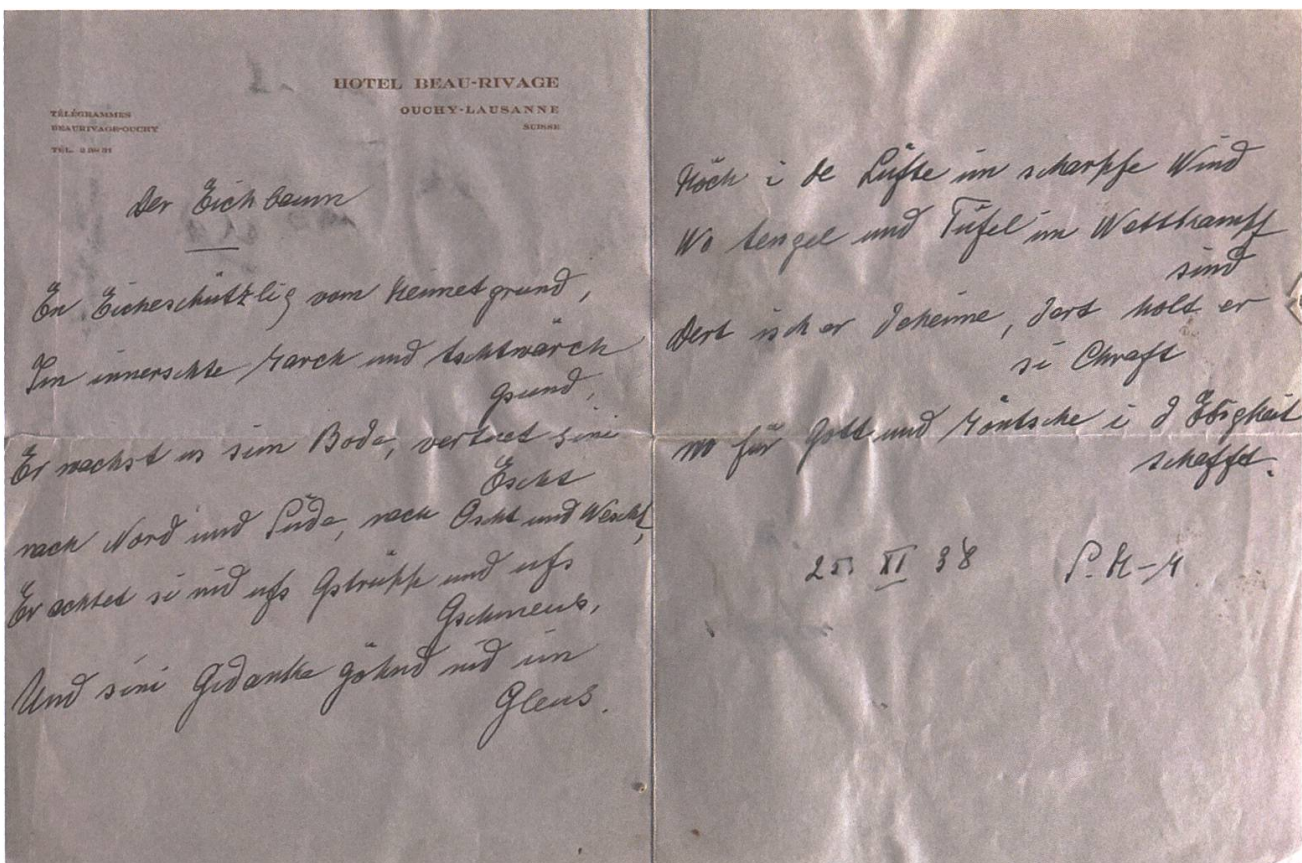 HOTEL BEAU-RIVAGE
OUCHY-LAUSANNE
SUISSE
TÉLÉGRAMMES
BEAURIVAGE-OUCHY
TÉL. 2 38 31
Der Eichbaum
En Eicheschützlig vom Heimetgrund,
Im innerschte March und
gsund,
Er wachst us sim Bode, vertret sini
Escht
nach Nord und Süde, nach Oscht und Wescht,
Er achtet si nid ufs Gstrüpp und ufs
Gschmeus,
Und sini Gedanke göhnd nid im
Gleus.
Höch i de Lüfte im scharpfe Wind
Wo Aengel und Tüfel im Wettkampf
sind
Dert isch er deheime, dort holt er
si Chraft
wo für Gott und Möntsche i d Ebigkeit
schaffet.
25 XI 38 S. H-M.